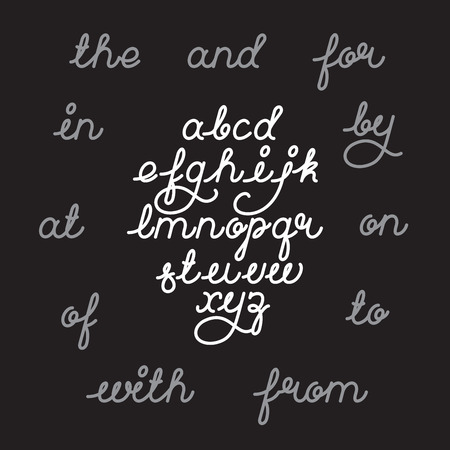 the and for
in abcd by
efghijk
at lmnopqr on
stuvw
of xyz to
with from